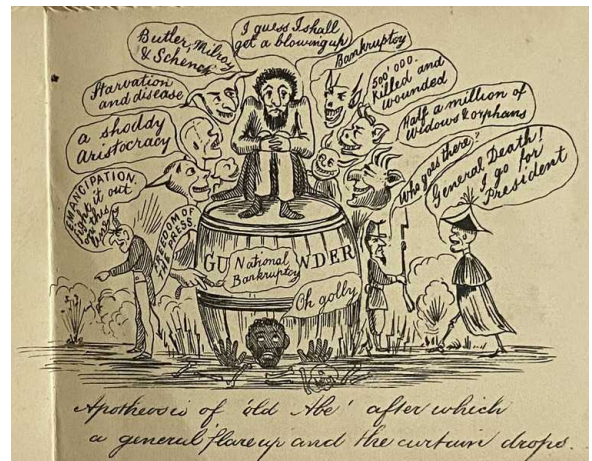 Butler, Milroy
& Schenck
I guess I shall
get a blowing up
Bankruptcy
Starvation
and disease
500'000.
killed and
wounded
a shoddy
Aristocracy
Half a million of
widows & orphans
EMANCIPATION.
fight it out
on this
line
FREEDOM OF
THE PRESS
Who goes there?
General Death!
I go for
President
GU WDER
National
Bankruptcy
Oh golly
Apotheosis of 'old Abe' after which
a general flare up and the curtain drops.